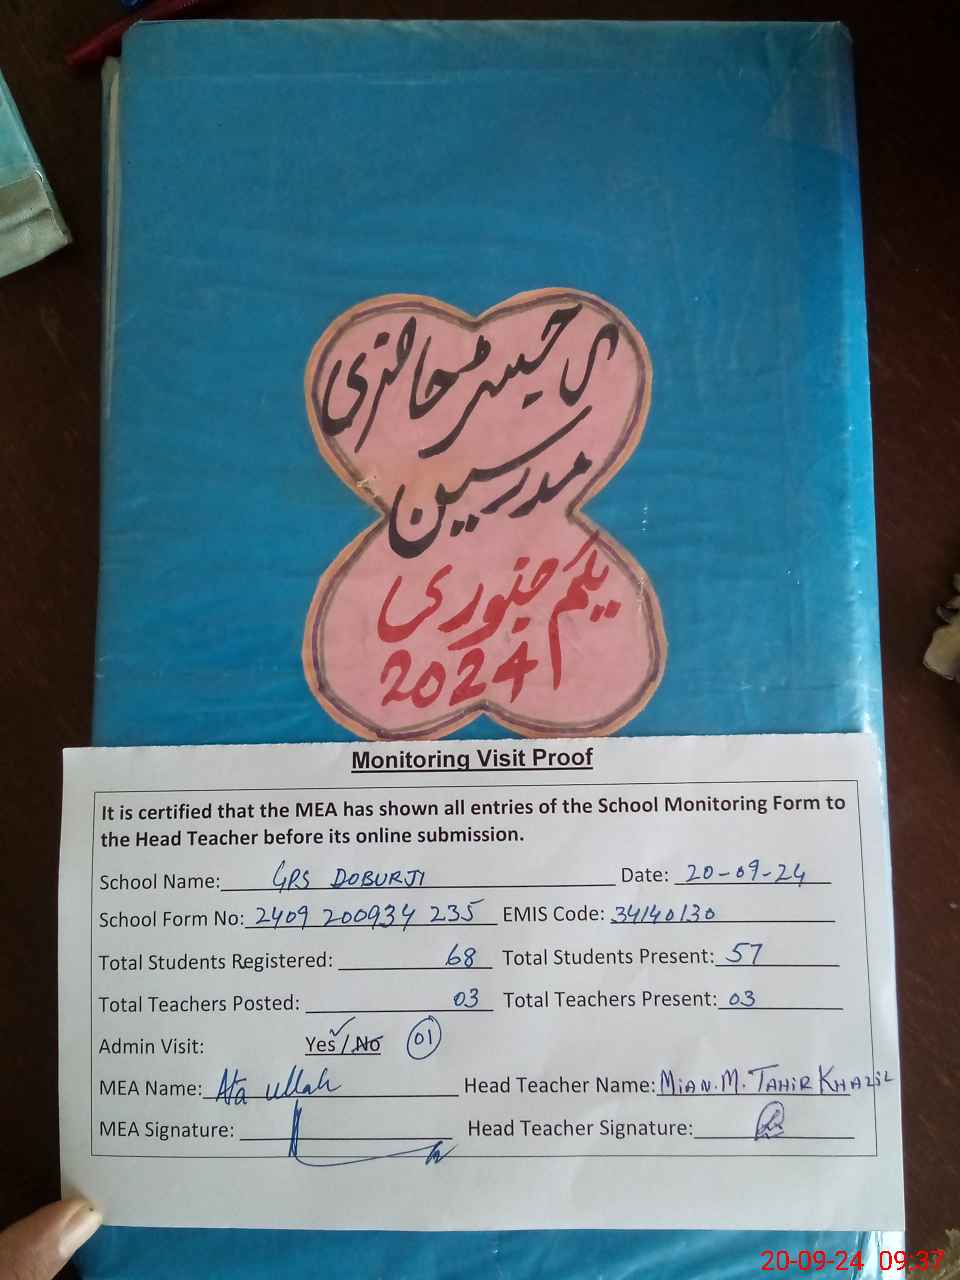 رجسٹر حاضری
مدرسین
یکم جنوری
2024
Monitoring Visit Proof
It is certified that the MEA has shown all entries of the School Monitoring Form to
the Head Teacher before its online submission.
School Name: GPS DOBURJI Date: 20-09-24
School Form No: 2409 200934 235 EMIS Code: 34140130
Total Students Registered: 68 Total Students Present: 57
Total Teachers Posted: 03 Total Teachers Present: 03
Admin Visit: Yes / No 01
MEA Name: Ata ullah Head Teacher Name: MIAN. M. TAHIR KHALIL
MEA Signature: Head Teacher Signature:
20-09-24 09:37